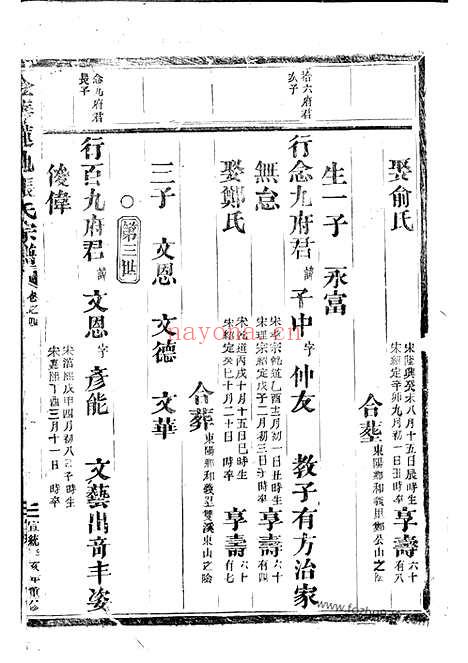 娶俞氏
宋隆興癸未八月十五日辰時生
宋紹定辛卯九月初一日丑時卒
享壽六十有八
合葬東陽鄉和義里鄭公山之陰
生一子 永富
拾六府君次子
行念九府君 諱 子中 字 仲友 教子有方治家
無怠
宋孝宗乾道乙酉三月初一日丑時生
宋理宗紹定戊子二月初三日 時卒
享壽六十有四
娶鄭氏
宋乾道丙戌十月十五日巳時生
宋紹定癸巳十月二十日 時卒
享壽六十有七
合葬東陽鄉和義里雙溪東山之陰
三子 文恩 文德 文華
○ 第三世
念九府君長子
行百九府君 諱 文恩 字 彥能 文藝出奇丰姿
俊偉
宋淳熙甲四月初八日子時生
宋嘉熙丁酉三月十一日 時卒
蓮池張氏宗譜 卷之四
宣統 亥年重修
hayona.com